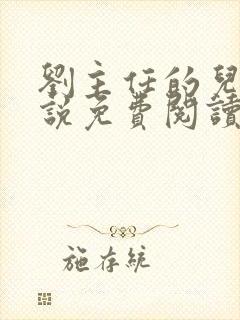 劉主任的兒
説免費閱讀
施存統